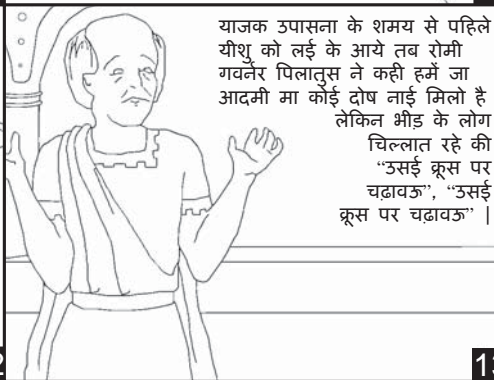 याजक उपासना के शमय से पहिले
यीशु को लई के आये तब रोमी
गवर्नर पिलातुस ने कही हमें जा
आदमी मा कोई दोष नाई मिलो है
लेकिन भीड़ के लोग
चिल्लात रहे की
“उसई क्रूस पर
चढ़ावऊ”, “उसई
क्रूस पर चढ़ावऊ” |